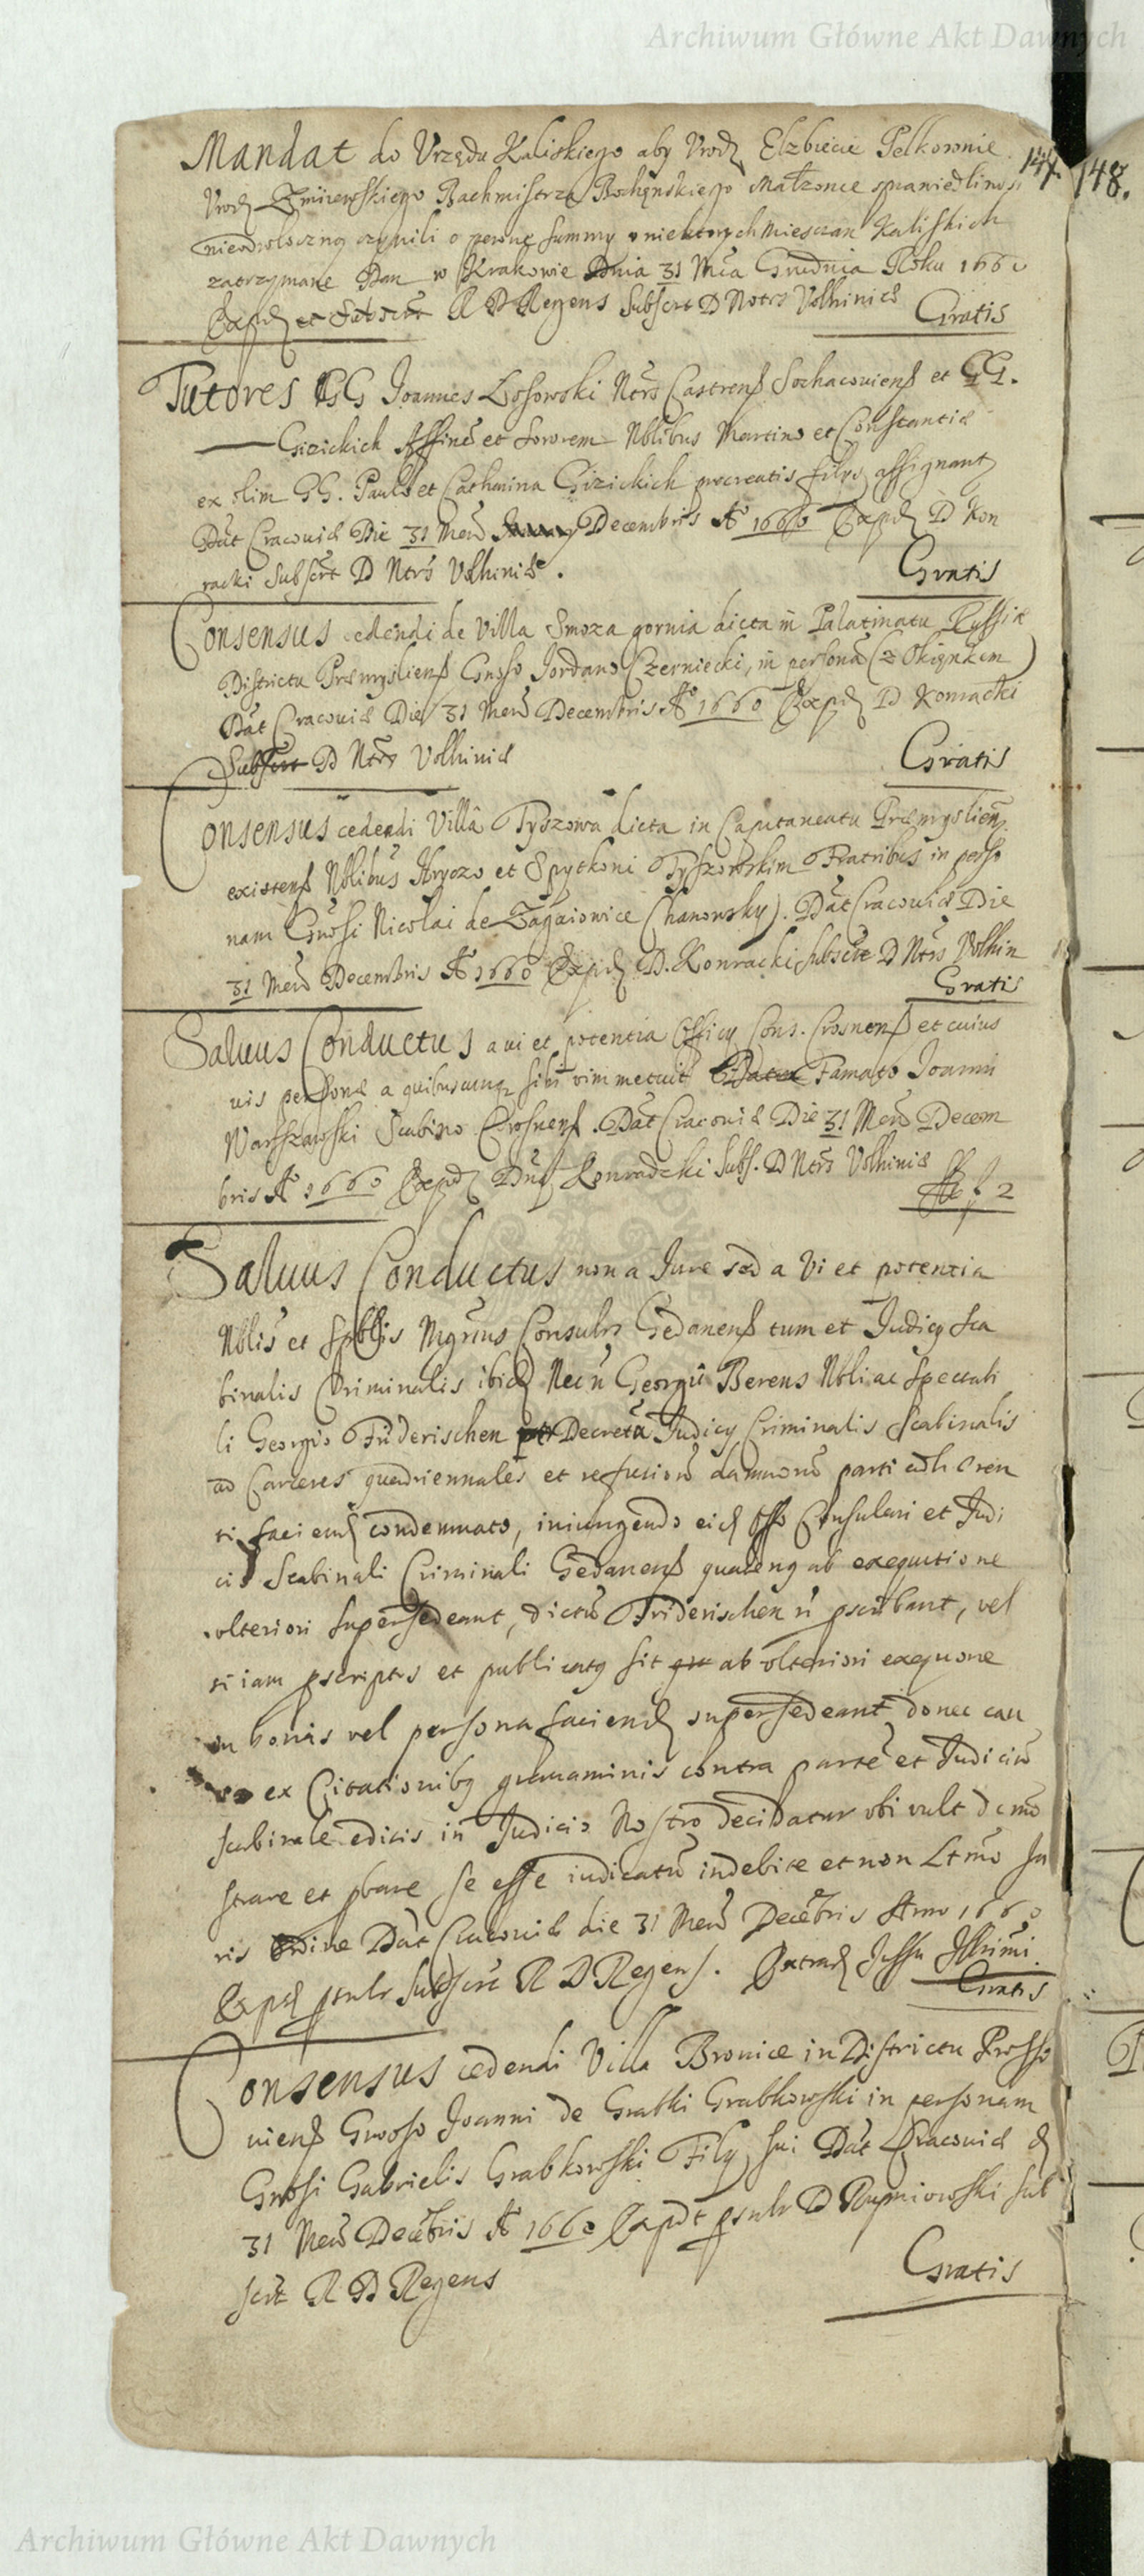 Archiwum Główne Akt Dawnych
147. 148.
Mandat do Urzędu Kaliskiego aby Urodz Elzbiecie Pelkownie
Urodz Zmiiewskiego Rachmistrza Bochynskiego Małzonce sprawiedliwosc
nieodwłoczną czynili o pewne summy u niektorych Miesczan Kaliskich
zatrzymane Dan w Krakowie Dnia 31 Mca Grudnia Roku 1660
Exped et Subscrt R D Regens Subscrt D Notrs Volhiniæ Gratis
Tutores GG Joannes Łosowski Ntrs Castrens Sochaczouiens et GG.
Gizickich Affine et Sororem Nblibus Martino et Constantiæ
ex olim GG. Paulo et Catharina Gizickich procreatis filys assignant
Dat Cracouiæ Die 31 Mens Decembris Ao 1660 Exped D Kon
racki Subscrt D Ntrs Volhiniæ. Gratis
Consensus cedendi de Villa Smoza gornia dicta in Palatinatu Russiæ
Districtu Præmysliens Gnoso Jordano Czerniecki, in persona (z Okiynkem)
Dat Cracouiæ Die 31 Mens Decembris Ao 1660 Exped D Konracki
Subscrt D Ntrs Volhiniæ Gratis
Consensus cedendi Villa Tyszowa dicta in Capitaneatu Præmyslien
existens Nblibus Hryczo et Spytkoni Tyszowskim Fratribus in perso
nam Gnosi Nicolai de Zagaiowice Chanowsky). Dat Cracouiæ Die
31 Mens Decembris Ao 1660 Exped D. Konracki subscrt D Ntrs Volhin
Gratis
Saluus Conductus a ui et potentia Officy Cons. Crosnens et cuius
uis personæ a quibuscunq sibi vim metuit Famato Joanni
Warszawski Scabino Crosnens. Dat Cracouiæ Die 31 Mens Decem
bris Ao 1660 Exped Dns Konradzki Subs. D Ntrs Volhiniæ
f 2
Saluus Conductus non a Jure sed a Vi et potentia
Nblis et Spblis Mgrius Consulrs Gedanens tum et Judicy Sca
binalis Criminalis ibid Necn Georgii Berens Nbli ac Spectabi
li Georgio Friderischen Decreta Judicy Criminalis Scabinalis
ad Carceres quadriennales et refusione damnoru parti
ri faciend condemnato, iniungendo eid Offo Consulari et Judi
cio Scabinali Criminali Gedanens quateng ab exequutione
vlteriori supersedeant, dictu Friderischen n pscribant, vel
si iam pscriptus et publicatq sit ab vlteriori exequone
in bonis vel persona faciend supersedeant donec cau
sa ex Citationibq grauaminis contra parte et Judiciu
scabinale editis in Judicio Nostro decidatur vbi vult demo
strare et pbare se esse iudicatu indebite et non Ltmo Ju
ris Ordine Dat Cracouiæ die 31 Mens Decebris Anno 1660
Exped psulr subscrt R D Regens. Extrad Jussu Illrimi
Gratis
Consensus cedendi Villa Bronice in Districtu Prosso
uiens Gnoso Joanni de Grabki Grabkowski in personam
Gnosi Gabrielis Grabkowski Fily sui Dat Cracouiæ d
31 Mens Decebris Ao 1660 Expdt psulr D Rupniowski sub
scrt R D Regens Gratis
Archiwum Główne Akt Dawnych